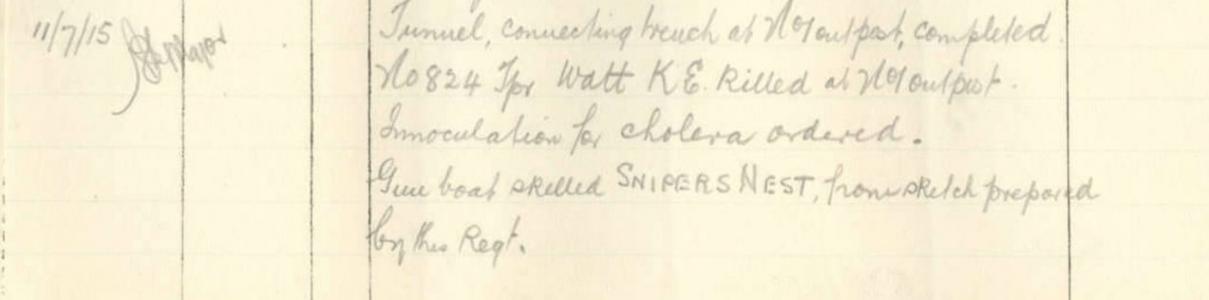 11/7/15 Major Tunnel, connecting trench at No 1 outpost, completed.
No 824 Tpr Watt K E. Killed at No 1 outpost.
Innoculation for cholera ordered.
Gun boat shelled SNIPERS NEST, from sketch prepared
by this Regt.